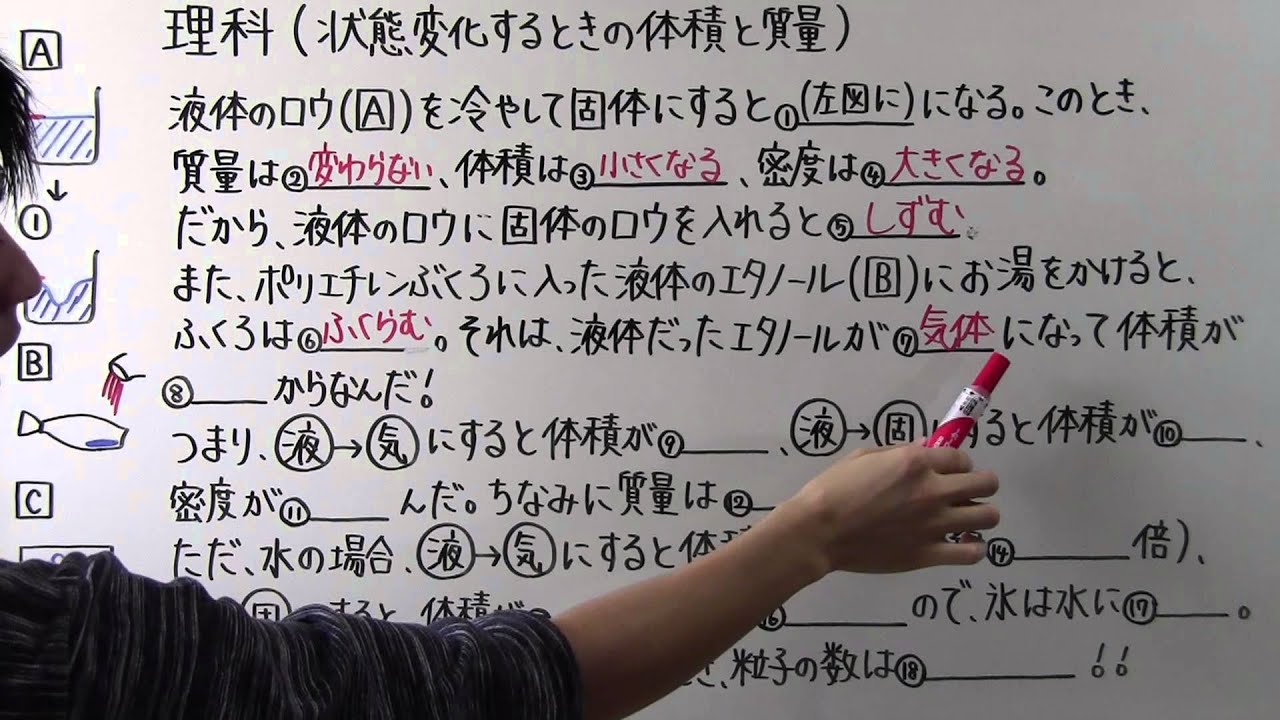 理科(状態変化するときの体積と質量)
A
液体のロウ(A)を冷やして固体にすると①(左図に)になる。このとき、
質量は②変わらない、体積は③小さくなる、密度は④大きくなる。
①
だから、液体のロウに固体のロウを入れると⑤しずむ。
また、ポリエチレンぶくろに入った液体のエタノール(B)にお湯をかけると、
ふくろは⑥ふくらむ。それは、液体だったエタノールが⑦気体になって体積が
B
⑧からなんだ!
つまり、液→気にすると体積が⑨、液→固にすると体積が⑩、
C
密度が⑪んだ。ちなみに質量は⑫
ただ、水の場合、液→気にすると体積 ⑭倍)、
固 すると、体積が ⑯ので、氷は水に⑰。
き、粒子の数は⑱!!